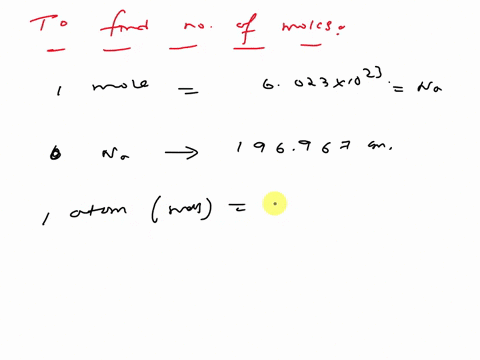 To find no. of moles:
1 mole = 6.023x10^23 = Na
Na → 196.967 gm.
1 atom (mass) =